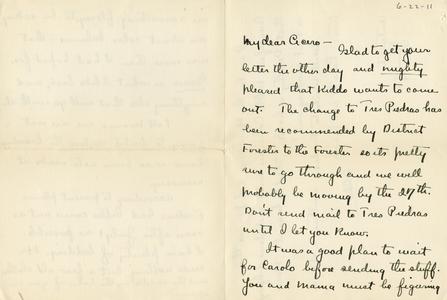 6-22-11
My dear Cicero—
Glad to get your
letter the other day and mighty
pleased that Kiddo wants to come
out. The change to Tres Piedras has
been recommended by District
Forester to the Forester so its pretty
sure to go through and we will
probably be moving by the 27th.
Don't send mail to Tres Piedras
until I let you know.
It was a good plan to wait
for Carolo before sending the stuff.
You and Mama must be figuring